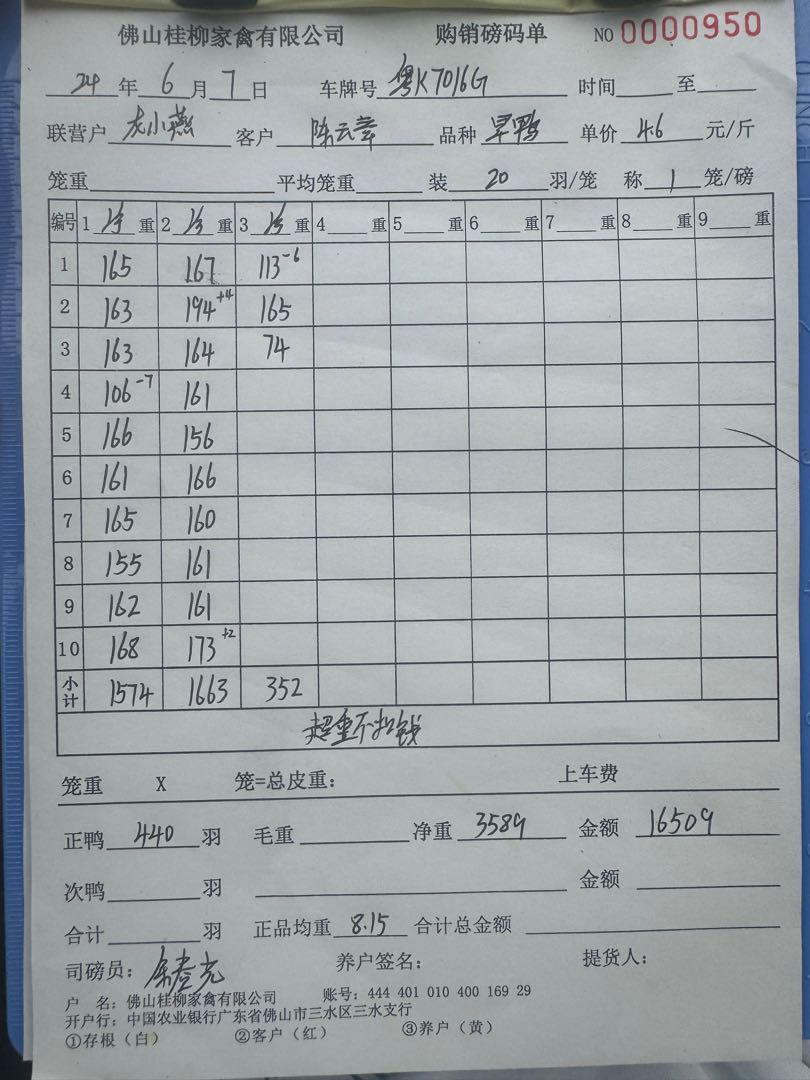 佛山桂柳家禽有限公司 购销磅码单 NO 0000950
24 年 6 月 7 日 车牌号 粤K7016G 时间 至
联营户 龙小燕 客户 陈云章 品种 旱鸭 单价 4.6 元/斤
笼重 平均笼重 装 20 羽/笼 称 1 笼/磅
编号 1 重 2 重 3 重 4 重 5 重 6 重 7 重 8 重 9 重
1 165 167 113-6
2 163 194+4 165
3 163 164 74
4 106-7 161
5 166 156
6 161 166
7 165 160
8 155 161
9 162 161
10 168 173+2
小计 1574 1663 352
超重不扣钱
笼重 X 笼=总皮重： 上车费
正鸭 440 羽 毛重 净重 3589 金额 16509
次鸭 羽 金额
合计 羽 正品均重 8.15 合计总金额
司磅员： 养户签名： 提货人：
户 名：佛山桂柳家禽有限公司 账号：444 401 010 400 169 29
开户行：中国农业银行广东省佛山市三水区三水支行
①存根（白） ②客户（红） ③养户（黄）